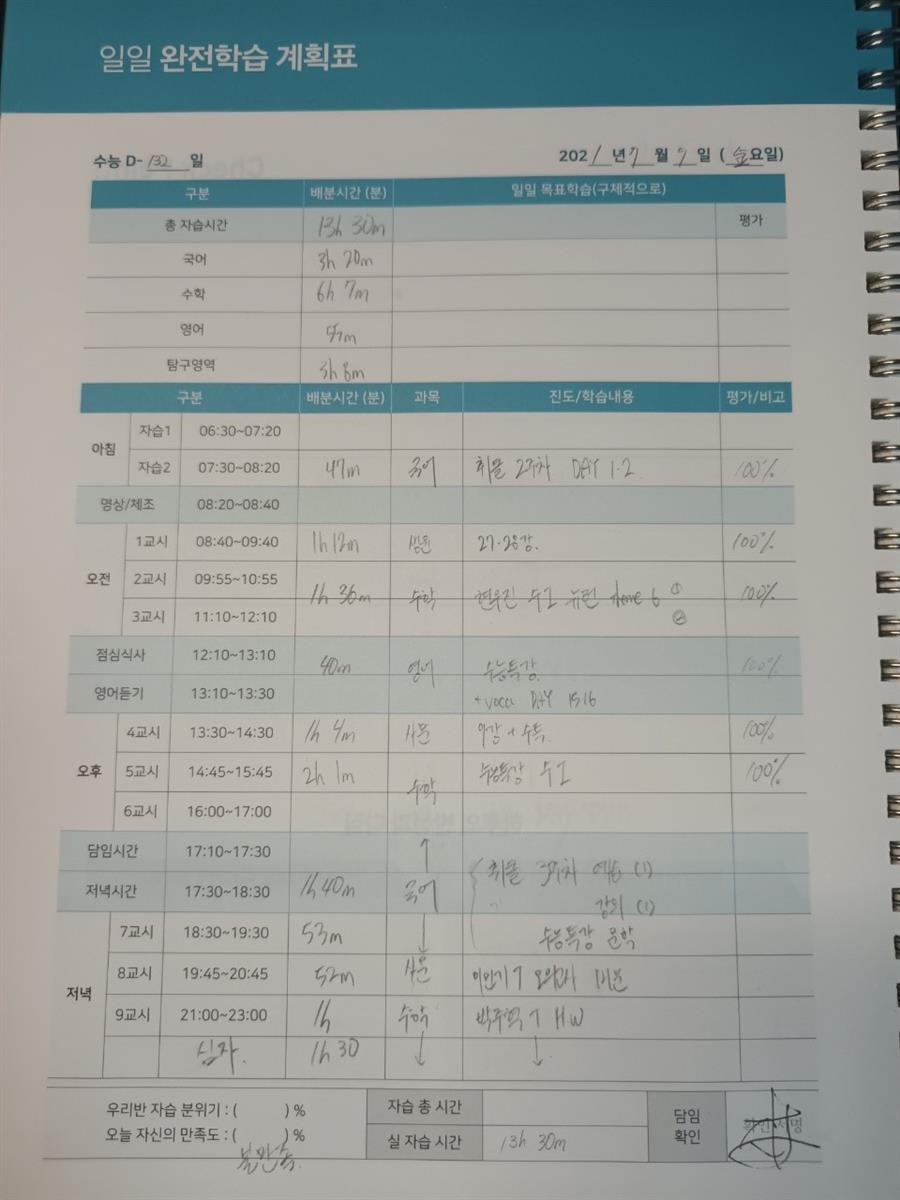 일일 완전학습 계획표
수능 D- 132 일
2021년 7월 9일 (金요일)
구분 배분시간 (분) 일일 목표학습(구체적으로)
총 자습시간 13h 30m 평가
국어 3h 20m
수학 6h 7m
영어
탐구영역 3h 8m
구분 배분시간 (분) 과목 진도/학습내용 평가/비고
아침 자습1 06:30~07:20
자습2 07:30~08:20 47m 국어 취클 2주차 DAY 1·2 100%
명상/체조 08:20~08:40
오전 1교시 08:40~09:40 1h 12m 27·28강. 100%
2교시 09:55~10:55 1h 36m 수학 현우진 수I 뉴런 theme 6 ① 100%
3교시 11:10~12:10 ②
점심식사 12:10~13:10 40m 영어 수능특강 100%
영어듣기 13:10~13:30 + voca DAY 15 16
오후 4교시 13:30~14:30 1h 4m 사문 + 수특. 100%
5교시 14:45~15:45 2h 1m 수학 수능특강 수I 100%
6교시 16:00~17:00
담임시간 17:10~17:30 ↑ 취클 3주차 예습 (1)
저녁시간 17:30~18:30 1h 40m 국어 〃 강의 (1)
저녁 7교시 18:30~19:30 53m ↓ 수능특강 문학
8교시 19:45~20:45 52m 사문
9교시 21:00~23:00 1h 수학 H.W
심자. 1h 30 ↓ ↓
우리반 자습 분위기 : ( ) % 자습 총 시간 담임 확인 확인 서명
오늘 자신의 만족도 : ( ) % 실 자습 시간 13h 30m
불만족.